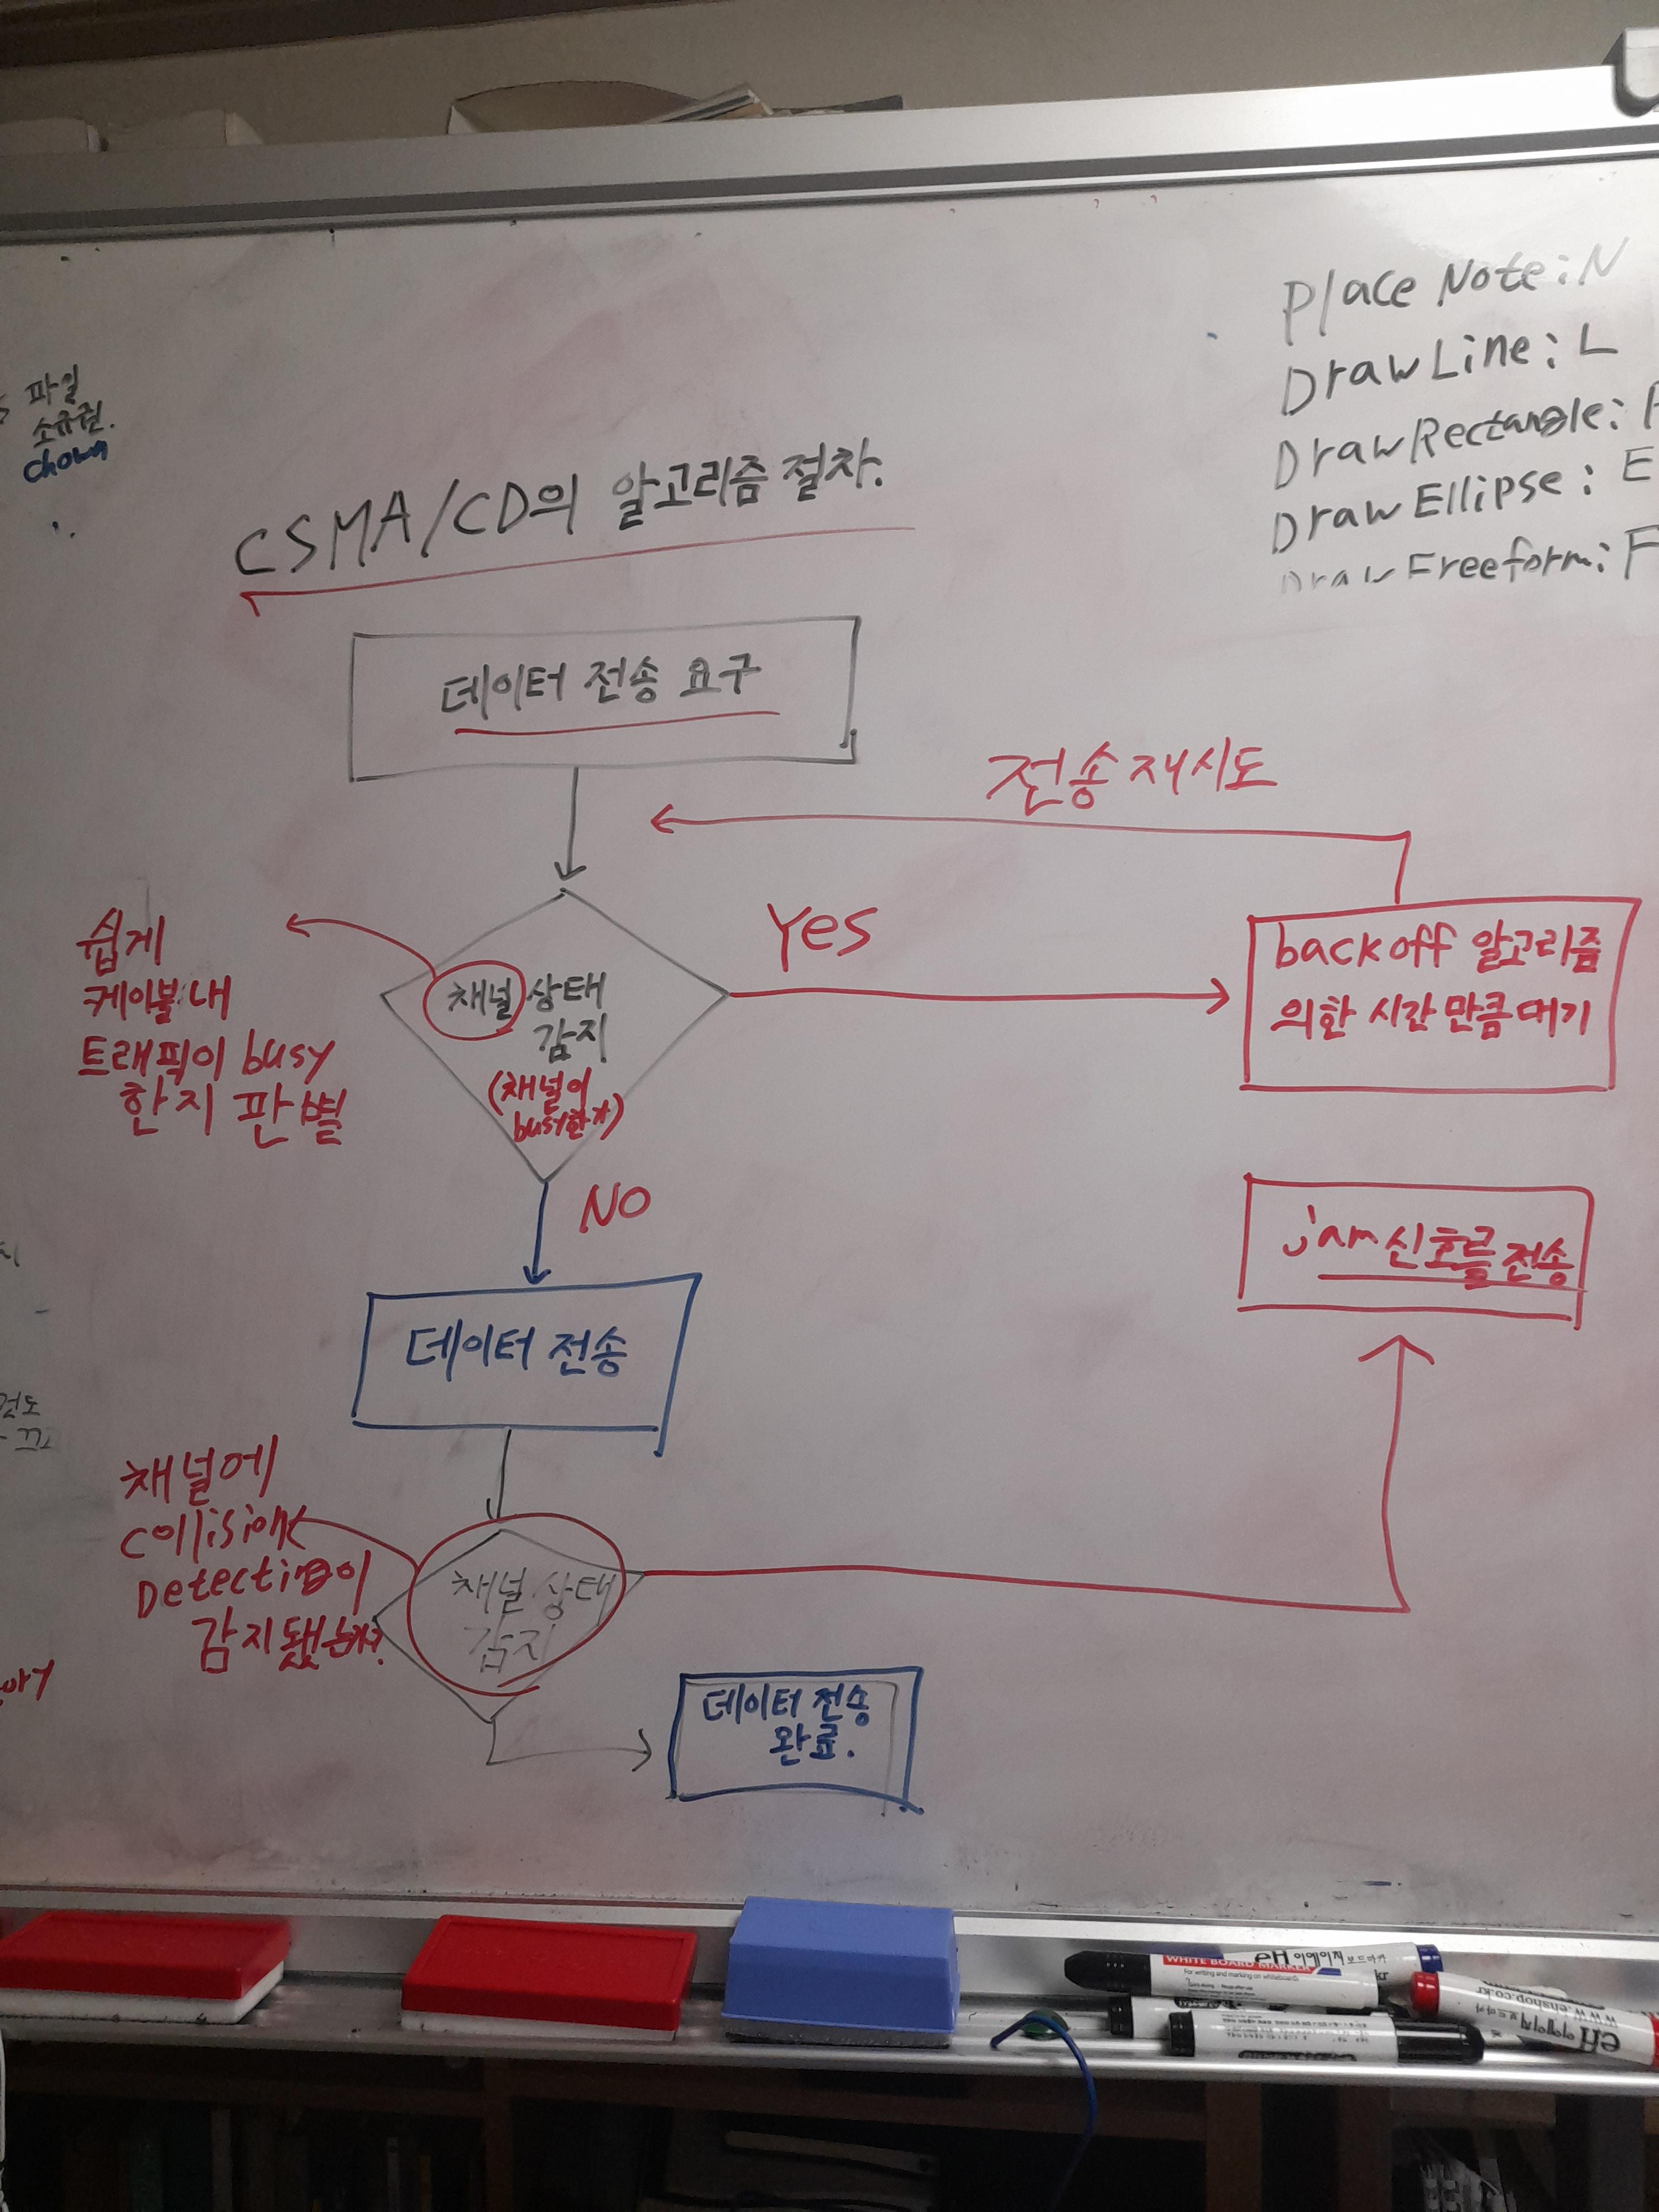 파일
소유권.
chown
Place Note: N
Draw Line: L
Draw Rectangle:
Draw Ellipse: E
Draw Freeform: F
CSMA/CD의 알고리즘 절차.
데이터 전송 요구
전송 재시도
쉽게
케이블 내
트래픽이 busy
한지 판별
채널 상태
감지
(채널이
busy한가)
Yes
backoff 알고리즘
의한 시간 만큼 대기
NO
jam 신호를 전송
데이터 전송
채널에
Collision
Detecting이
감지됐는가?
채널 상태
감지
데이터 전송
완료.
WHITE BOARD MARKER
For writing and marking on whiteboards
eH 이에이치 보드마카
www.ehshop.co.kr
eH 이에이치 보드마카